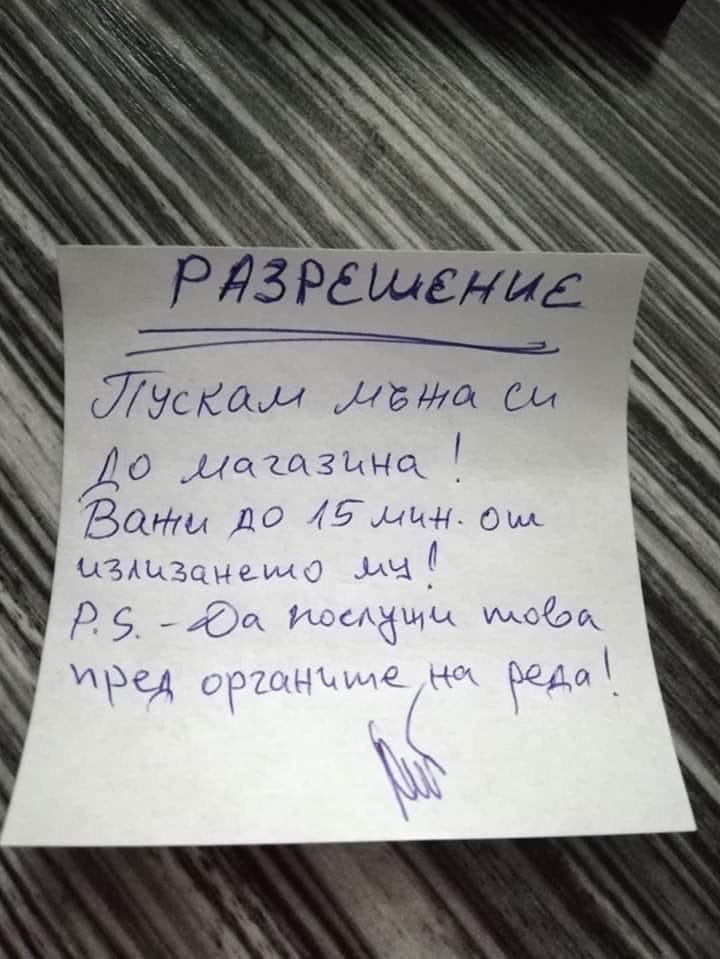 РАЗРЕШЕНИЕ
Пускам мъжа си
до магазина!
Важи до 15 мин. от
излизането му!
P.S. - Да послущи това
пред органите на реда!